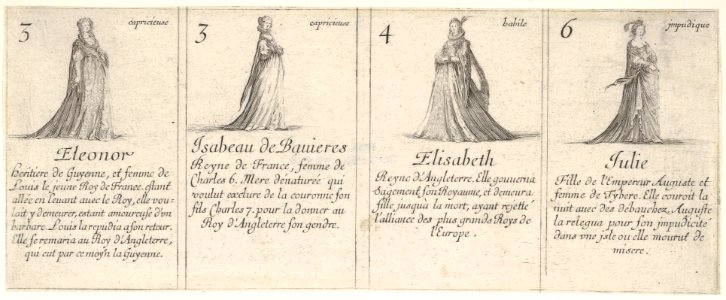 3 capricieuse
Eleonor
heritiere de Guyenne, et femme de
Louis le jeune Roy de France. estant
allée en Leuant avec le Roy, elle vou-
loit y demeurer, estant amoureuse d'un
barbare. Louis la repudia a son retour.
Elle se remaria au Roy d'Angleterre,
qui eut par ce moyn la Guyenne.
3 capricieuse
Isabeau de Bauieres
Reyne de France, femme de
Charles 6. Mere denaturée qui
voulut exclure de la couronne son
fils Charles 7. pour la donner au
Roy d'Angleterre son gendre.
4 habile
Elisabeth
Reyne d'Angleterre. Elle gouverna
sagement son Royaume, et demeura
fille jusqu'a la mort, ayant rejetté
l'alliance des plus grands Roys de
l'Europe.
6 impudique
Julie
Fille de l'Empereur Auguste et
femme de Tybere. Elle couroit la
nuit avec des débauchez. Auguste
la relegua pour son impudicité
dans vne isle ou elle mourut de
misere.